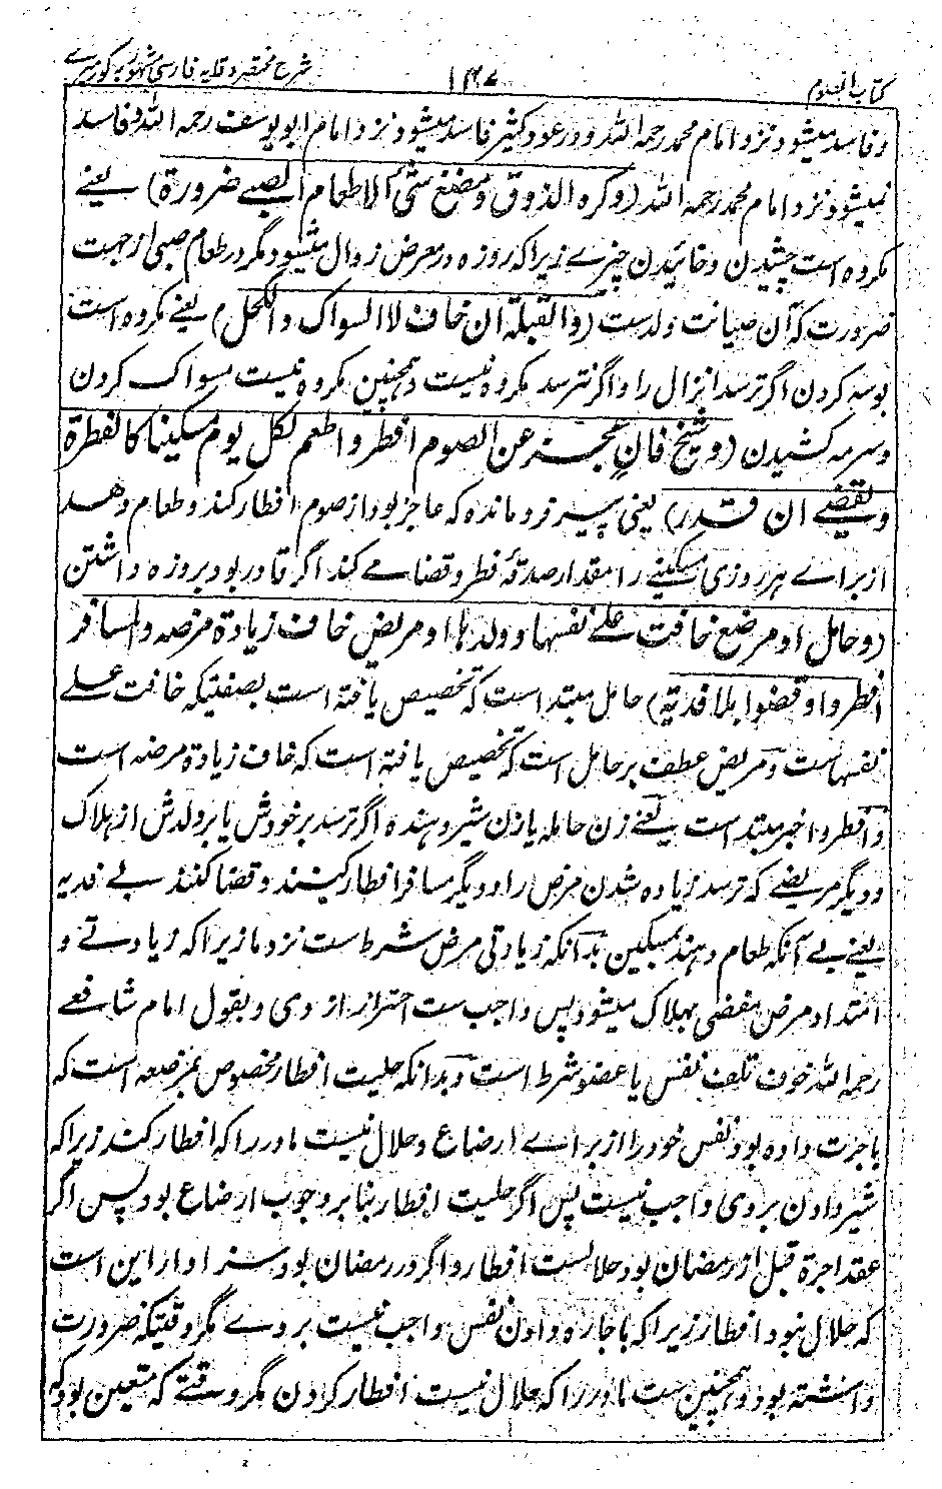 کتاب الصوم
۱۴۷
شرح مختصر وقایه فارسی مشهور به کور میری
و فاسد میشود نزد امام محمد رحمه الله و در عود کثیر فاسد میشود نزد امام ابو یوسف رحمه الله و فاسد
نمیشود نزد امام محمد رحمه الله (وکره الذوق ومضغ شئ الا طعام الصبے ضرورة) یعنے
مکروه است چشیدن و خائیدن چیزے زیرا که روزه در معرض زوال میشود مگر در طعام صبی از جهت
ضرورت که آن صیانت ولدست (والقبلة ان خاف لا السواک والکحل) یعنے مکروه است
بوسه کردن اگر ترسد انزال را و اگر نترسد مکروه نیست و همچنین مکروه نیست مسواک کردن
و سرمه کشیدن (وشیخ فان عجز عن الصوم افطر واطعم لکل یوم مسکینا کالفطرة
ویقضے ان قدر) یعنی پیر فرومانده که عاجز بود از صوم افطار کند و طعام دهد
از براے هر روزی مسکینے را مقدار صدقۂ فطر و قضا مے کند اگر قادر بود بروزه داشتن
(وحامل او مرضع خافت علے نفسها او ولدها او مریض خاف زیادة مرضه والمسافر
افطروا وقضوا بلا فدیة) حامل مبتدا است که تخصیص یافته است بصفتیکه خافت علے
نفسهاست و مریض عطف بر حامل است که تخصیص یافته است که خاف زیادة مرضه است
و افطروا خبر مبتدا است یعنے زن حامله یا زن شیر دهنده اگر ترسد بر خودش یا بر ولدش از هلاک
و دیگر مریضے که ترسد زیاده شدن مرض را و دیگر مسافر افطار کنند و قضا کنند بے فدیه
یعنے بے آنکه طعام دهند بمسکین بدانکه زیادتی مرض شرط ست نزد ما زیرا که زیادتے و
امتداد مرض مفضی بهلاک میشود پس واجب ست احتراز از وی و بقول امام شافعے
رحمه الله خوف تلف نفس یا عضو شرط است و بدانکه حلیت افطار مخصوص بمرضعه است که
باجرت داده بود نفس خود را از براے ارضاع و حلال نیست مادر را که افطار کند زیرا که
شیر دادن بر وی واجب نیست پس اگر حلیت افطار بنا بر وجوب ارضاع بود پس اگر
عقد اجرة قبل از رمضان بود حلالست افطار و اگر در رمضان بود سزاوار این است
که حلال نبود افطار زیرا که باجاره دادن نفس واجب نیست بر وے مگر وقتیکه ضرورت
داشته بود و همچنین ست مادر را که حلال نیست افطار کردن مگر وقتے که متعین بود که